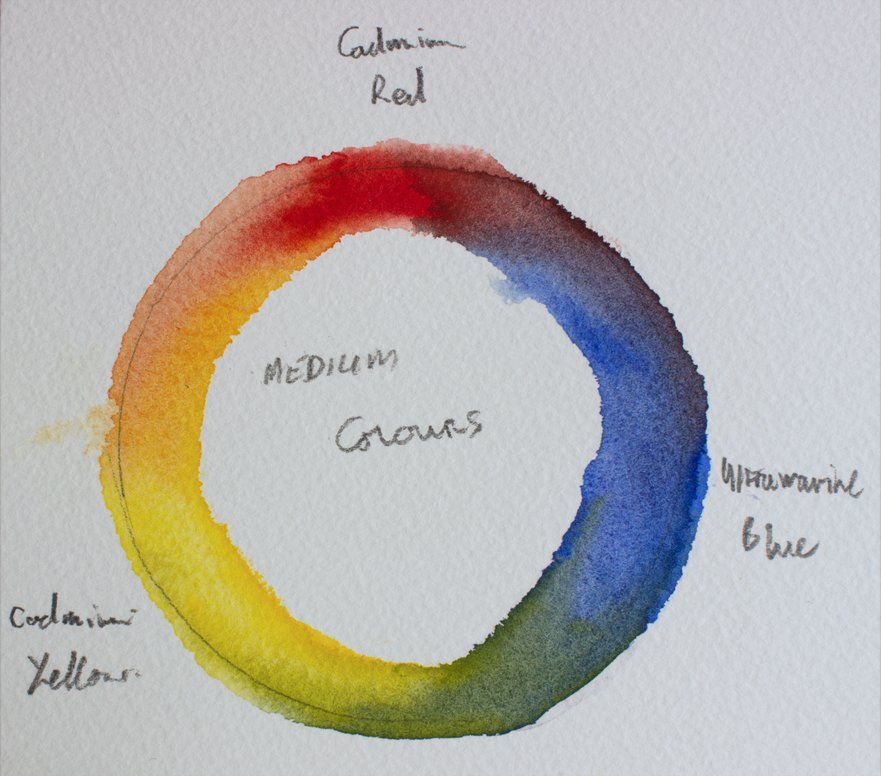 Cadmium
Red
MEDIUM
Colours
Ultramarine
Blue
Cadmium
Yellow.